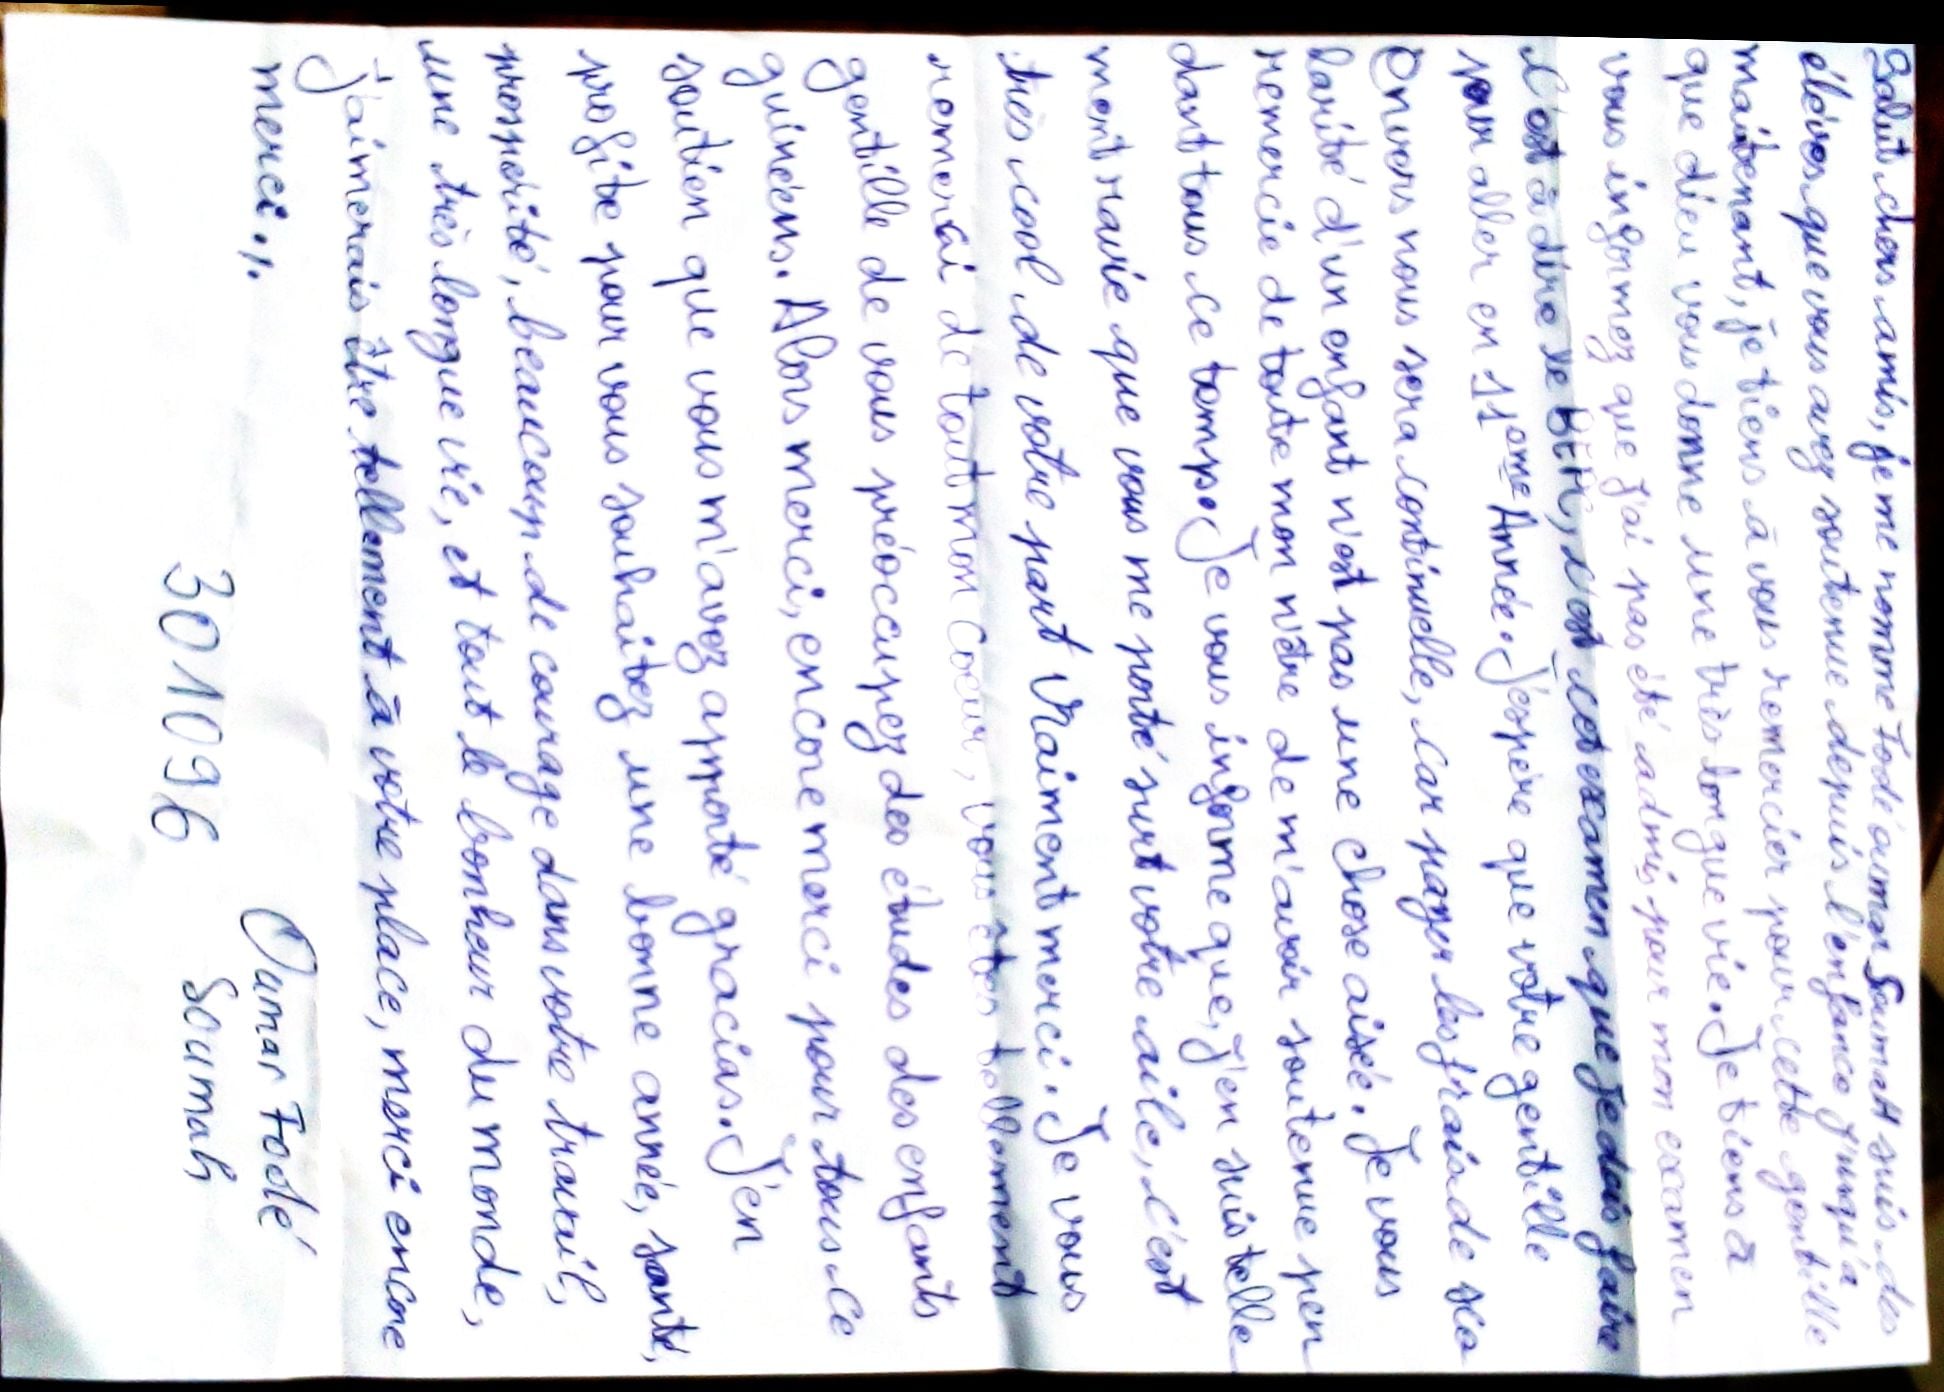 Salut chers amis, je me nomme Fodé oumar SoumaH suis des
éléves que vous avez soutenue depuis l'enfance j'usqu'à
maintenant, je tiens à vous remercier pour cette gentille
que dieu vous donne une très longue vie. Je tiens à
vous informez que j'ai pas été admis pour mon examen
c'est à dire le BEPC, c'est cet examen que je dois faire
pour aller en 11ème Année. J'espère que votre gentille
Envers nous sera continuelle, car payer les frais de sco
larité d'un enfant n'est pas une chose aisée. Je vous
remercie de toute mon n'être de m'avoir soutenue pen
dant tous ce temps. Je vous informe que, j'en suis telle
ment ravie que vous me porté surt votre aile, c'est
très cool de votre part Vraiment merci. Je vous
remerai de tout mon coeur, vous êtes tellement
gentille de vous préoccupez des études des enfants
guinéens. Alors merci, encore merci pour tous ce
soutien que vous m'avez apporté gracias. J'en
profite pour vous souhaitez une bonne année, santé,
prospérité, beaucoup de courage dans votre travail,
une très longue vie, et tout le bonheur du monde,
j'aimerais être tellement à votre place, merci encore
merci ./.
Oumar Fodé
301096 Soumah